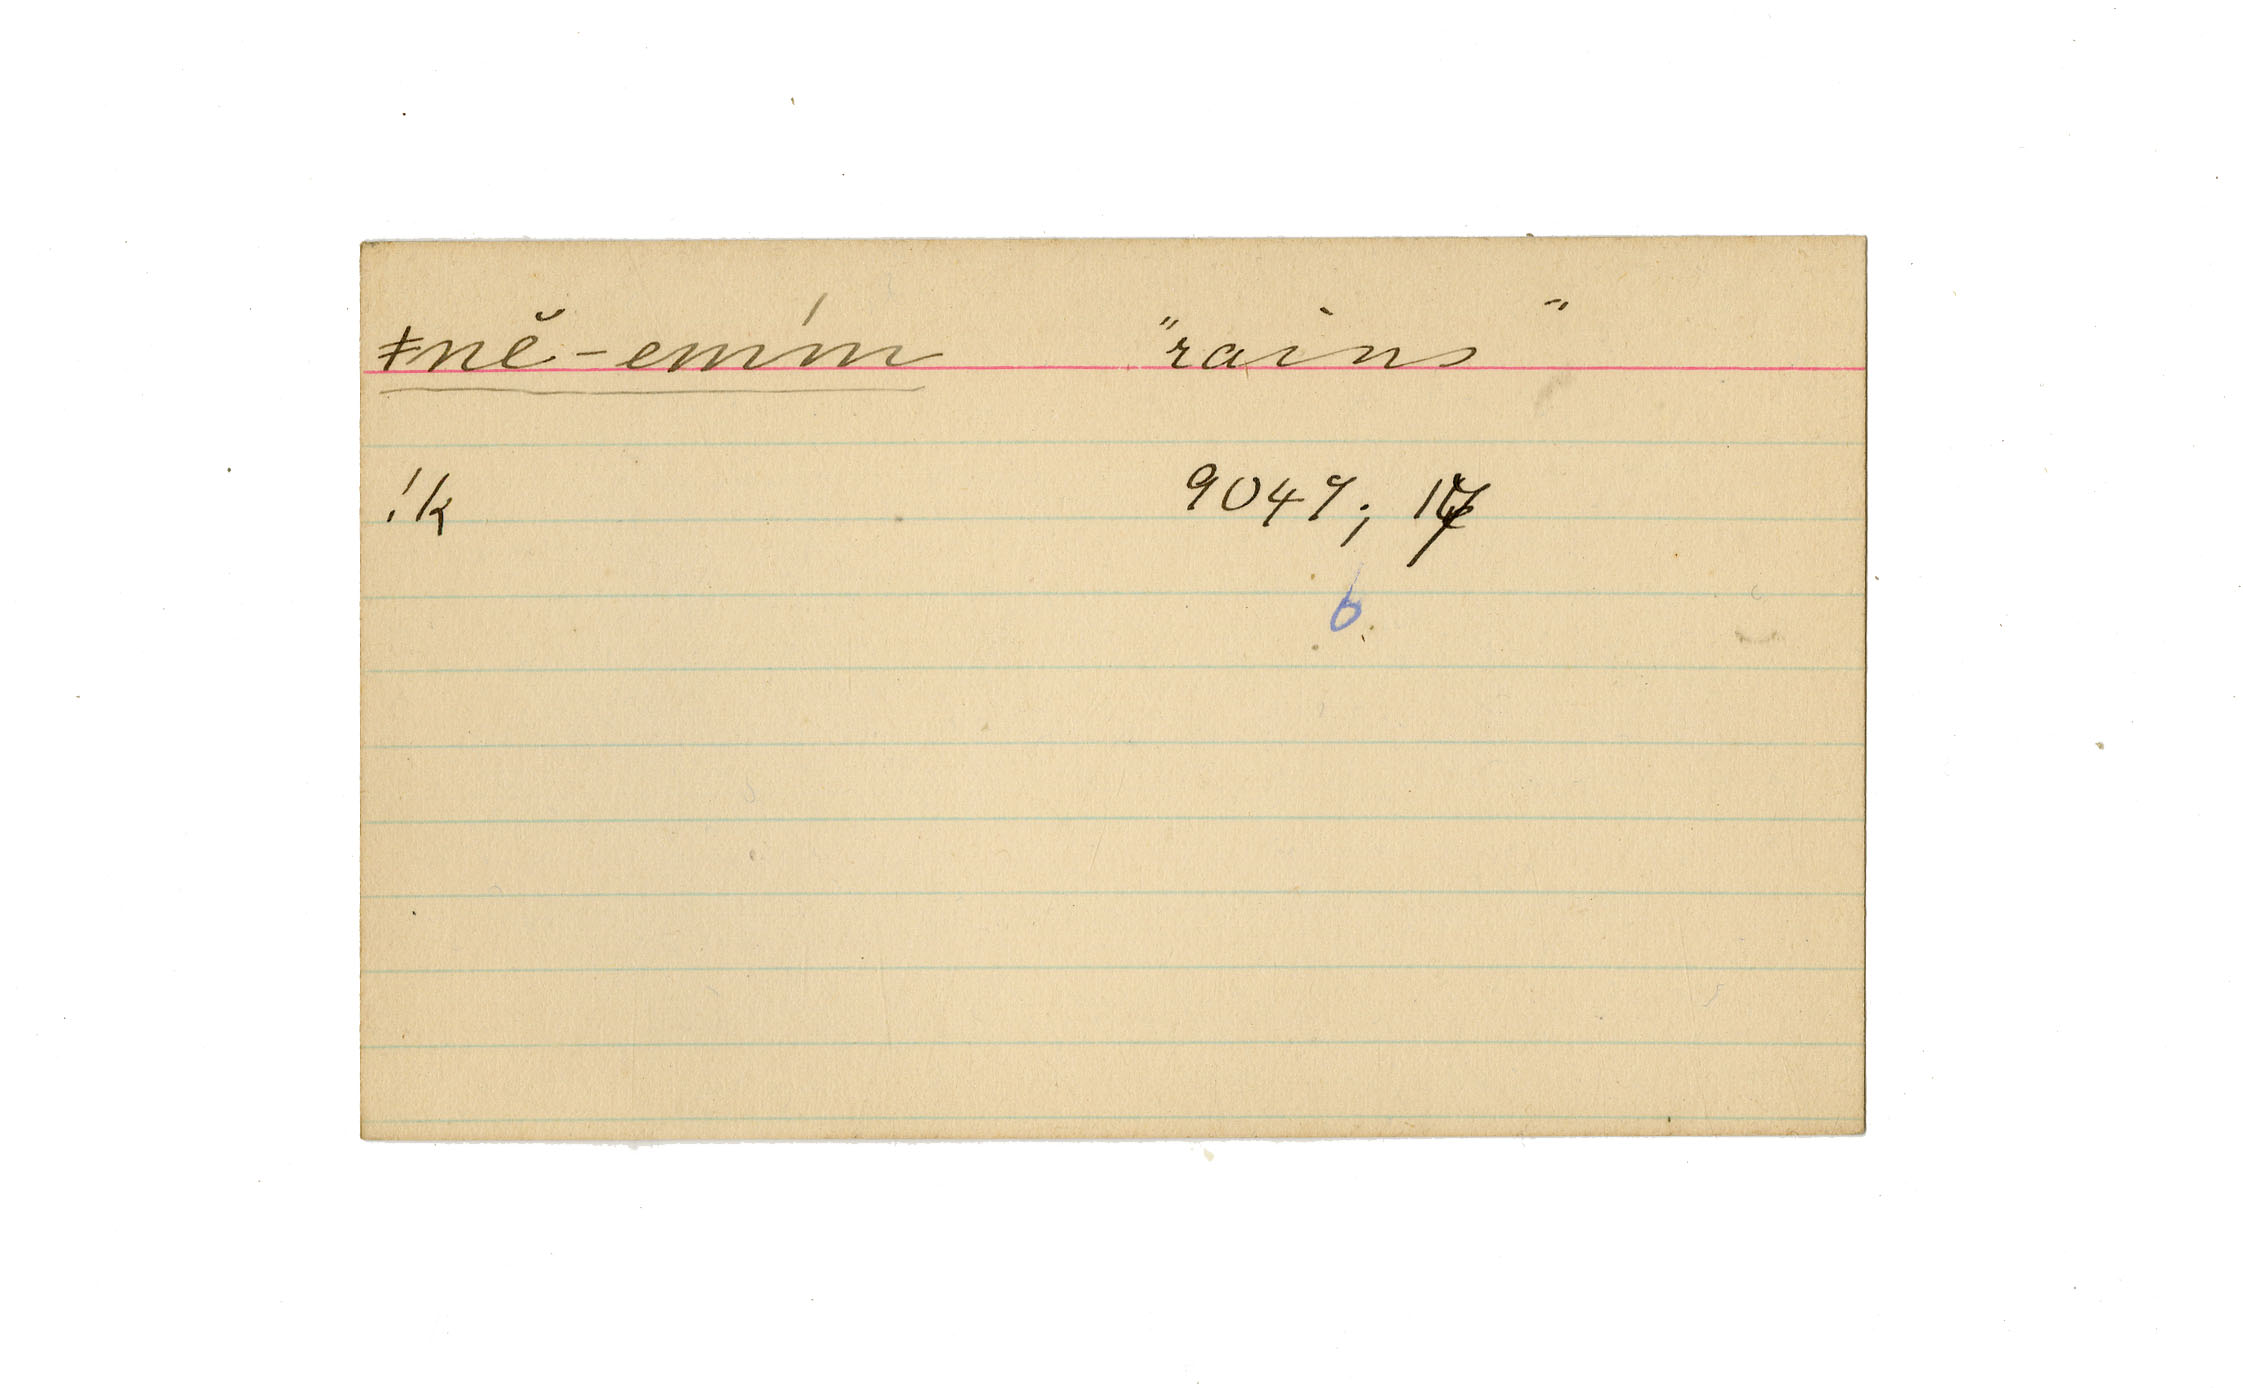 ǂnĕ-emḿ "rains"
!k 9047; 17
6